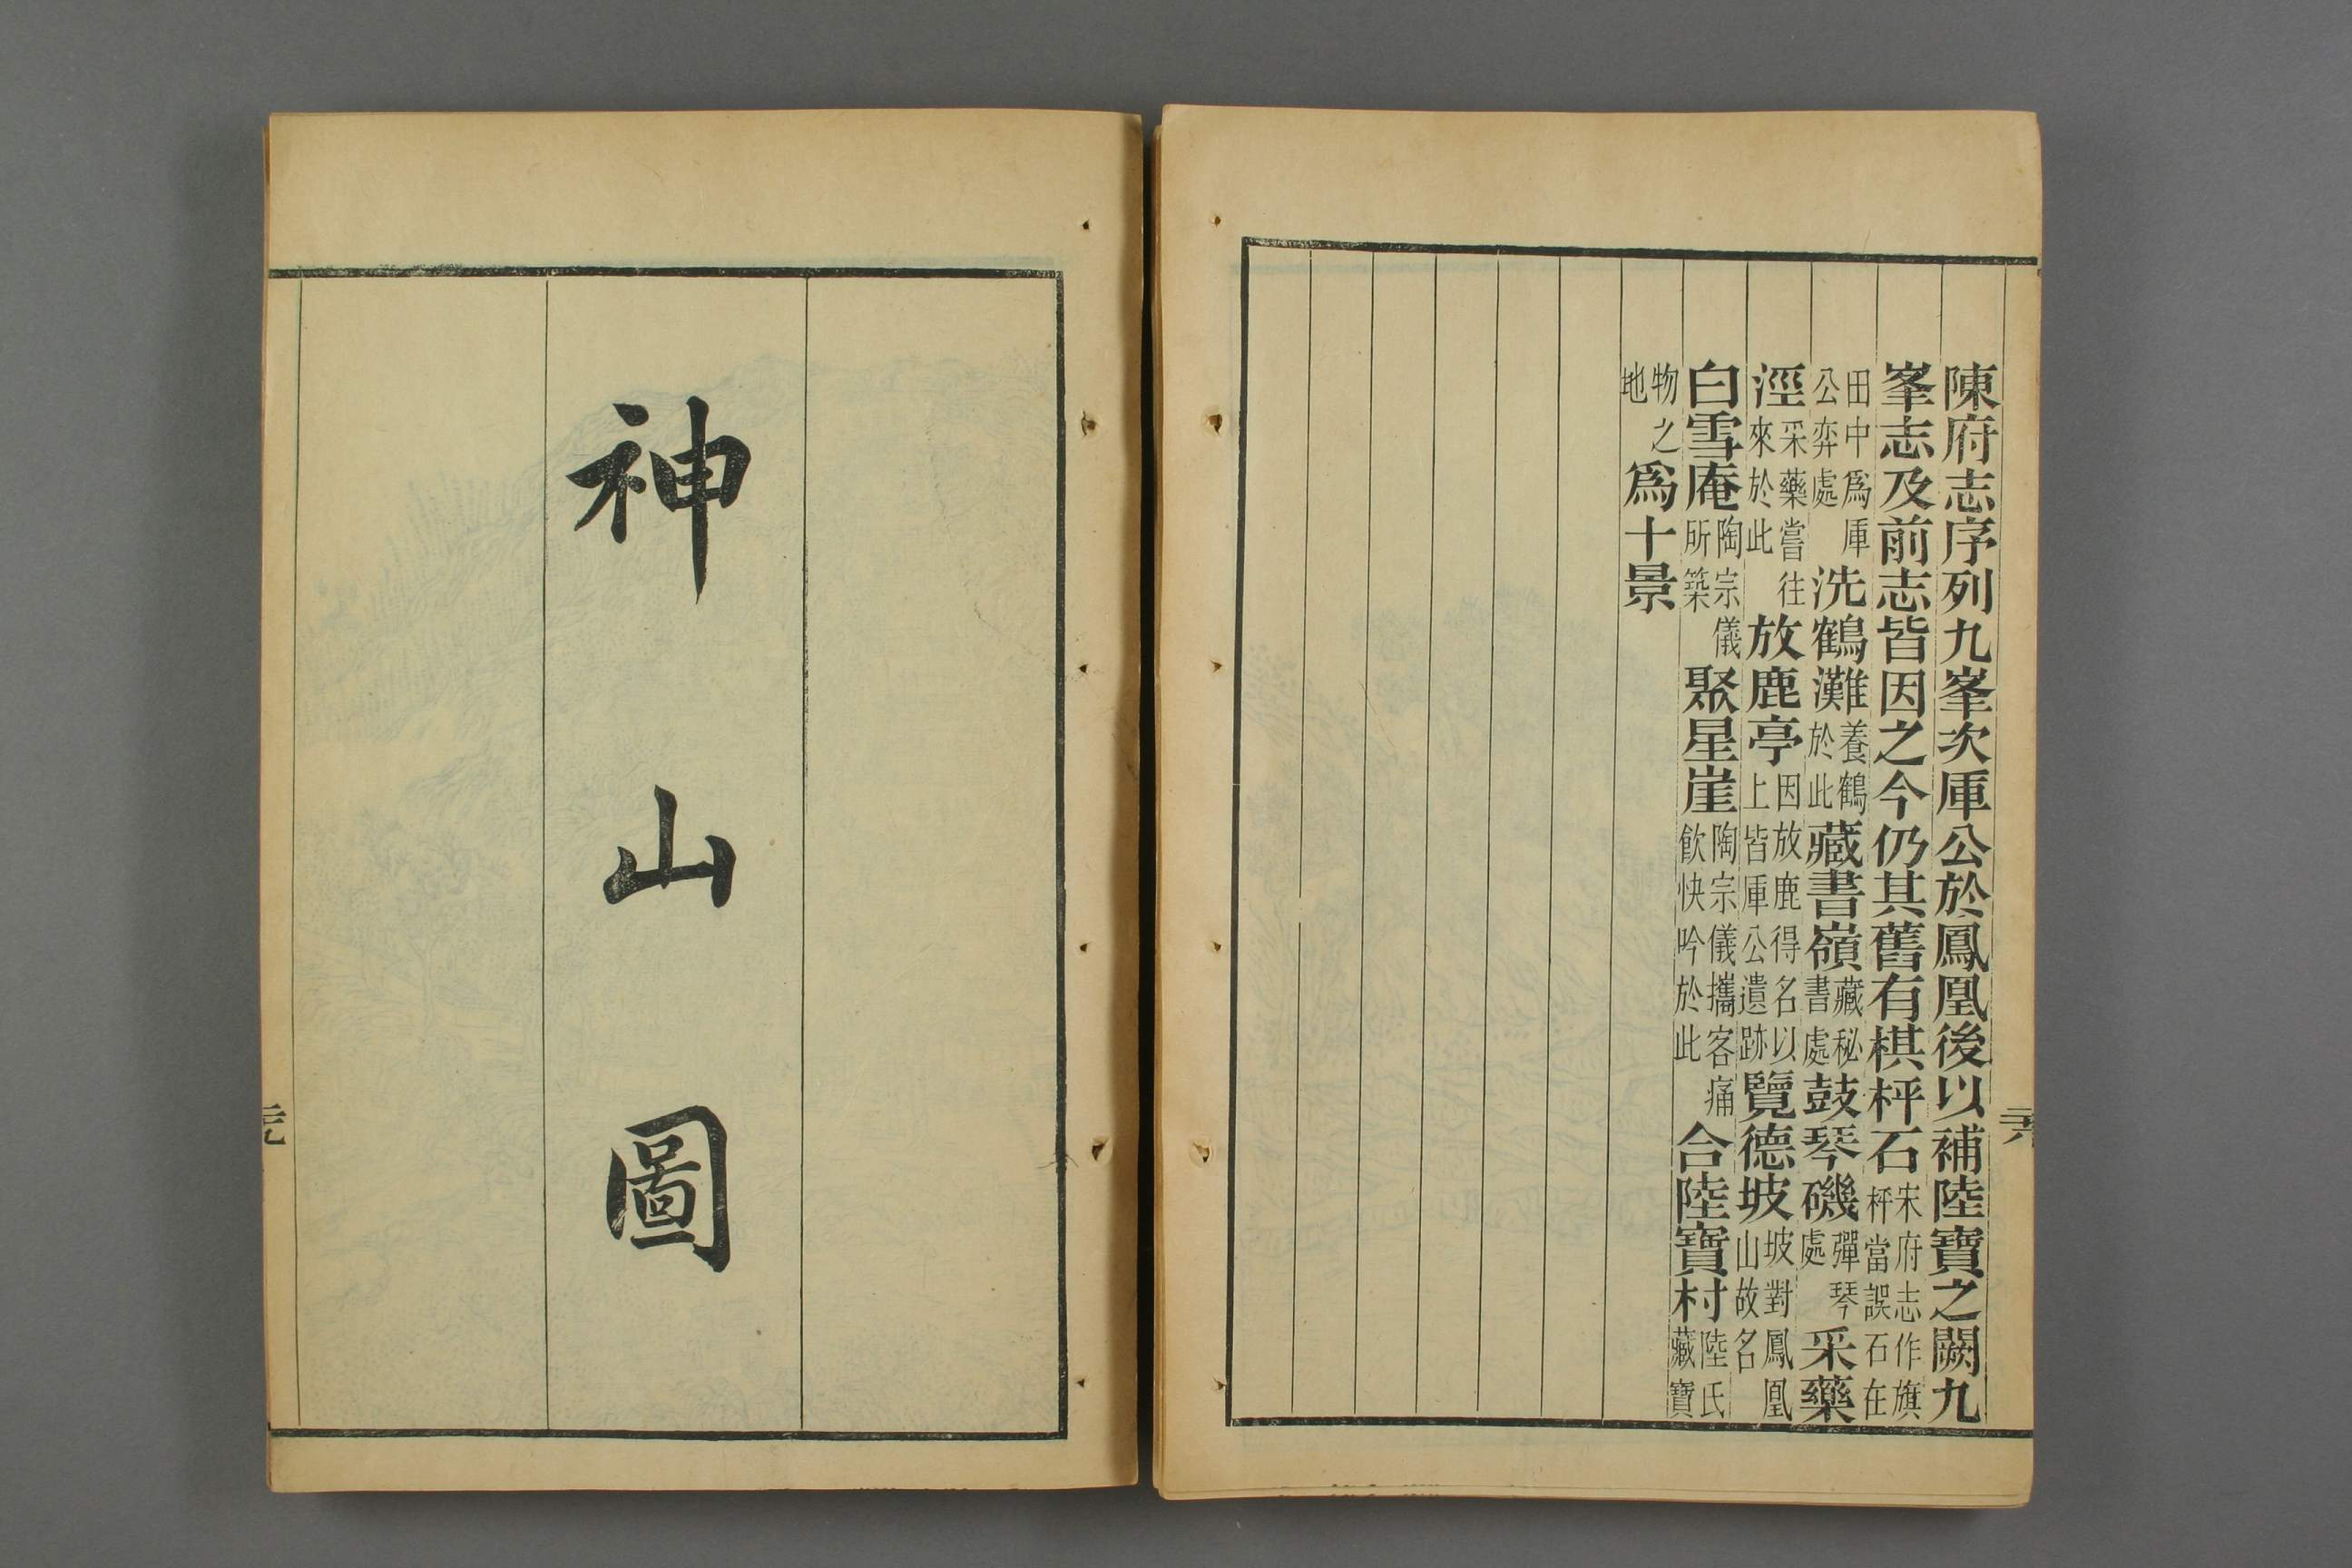 陳府志序列九峯次厙公於鳳凰後以補陸寶之闕九
峯志及前志皆因之今仍其舊有棋枰石宋府志作旗枰當誤石在
田中為厙公弈處洗鶴灘養鶴於此藏書嶺藏秘書處鼓琴磯彈琴處采藥
涇采藥嘗往來於此放鹿亭因放鹿得名以上皆厙公遺跡覽德坡坡對鳳凰山故名
白雪庵陶宗儀所築聚星崖陶宗儀攜客痛飲快吟於此合陸寶村陸氏藏寶
物之地爲十景
神山圖